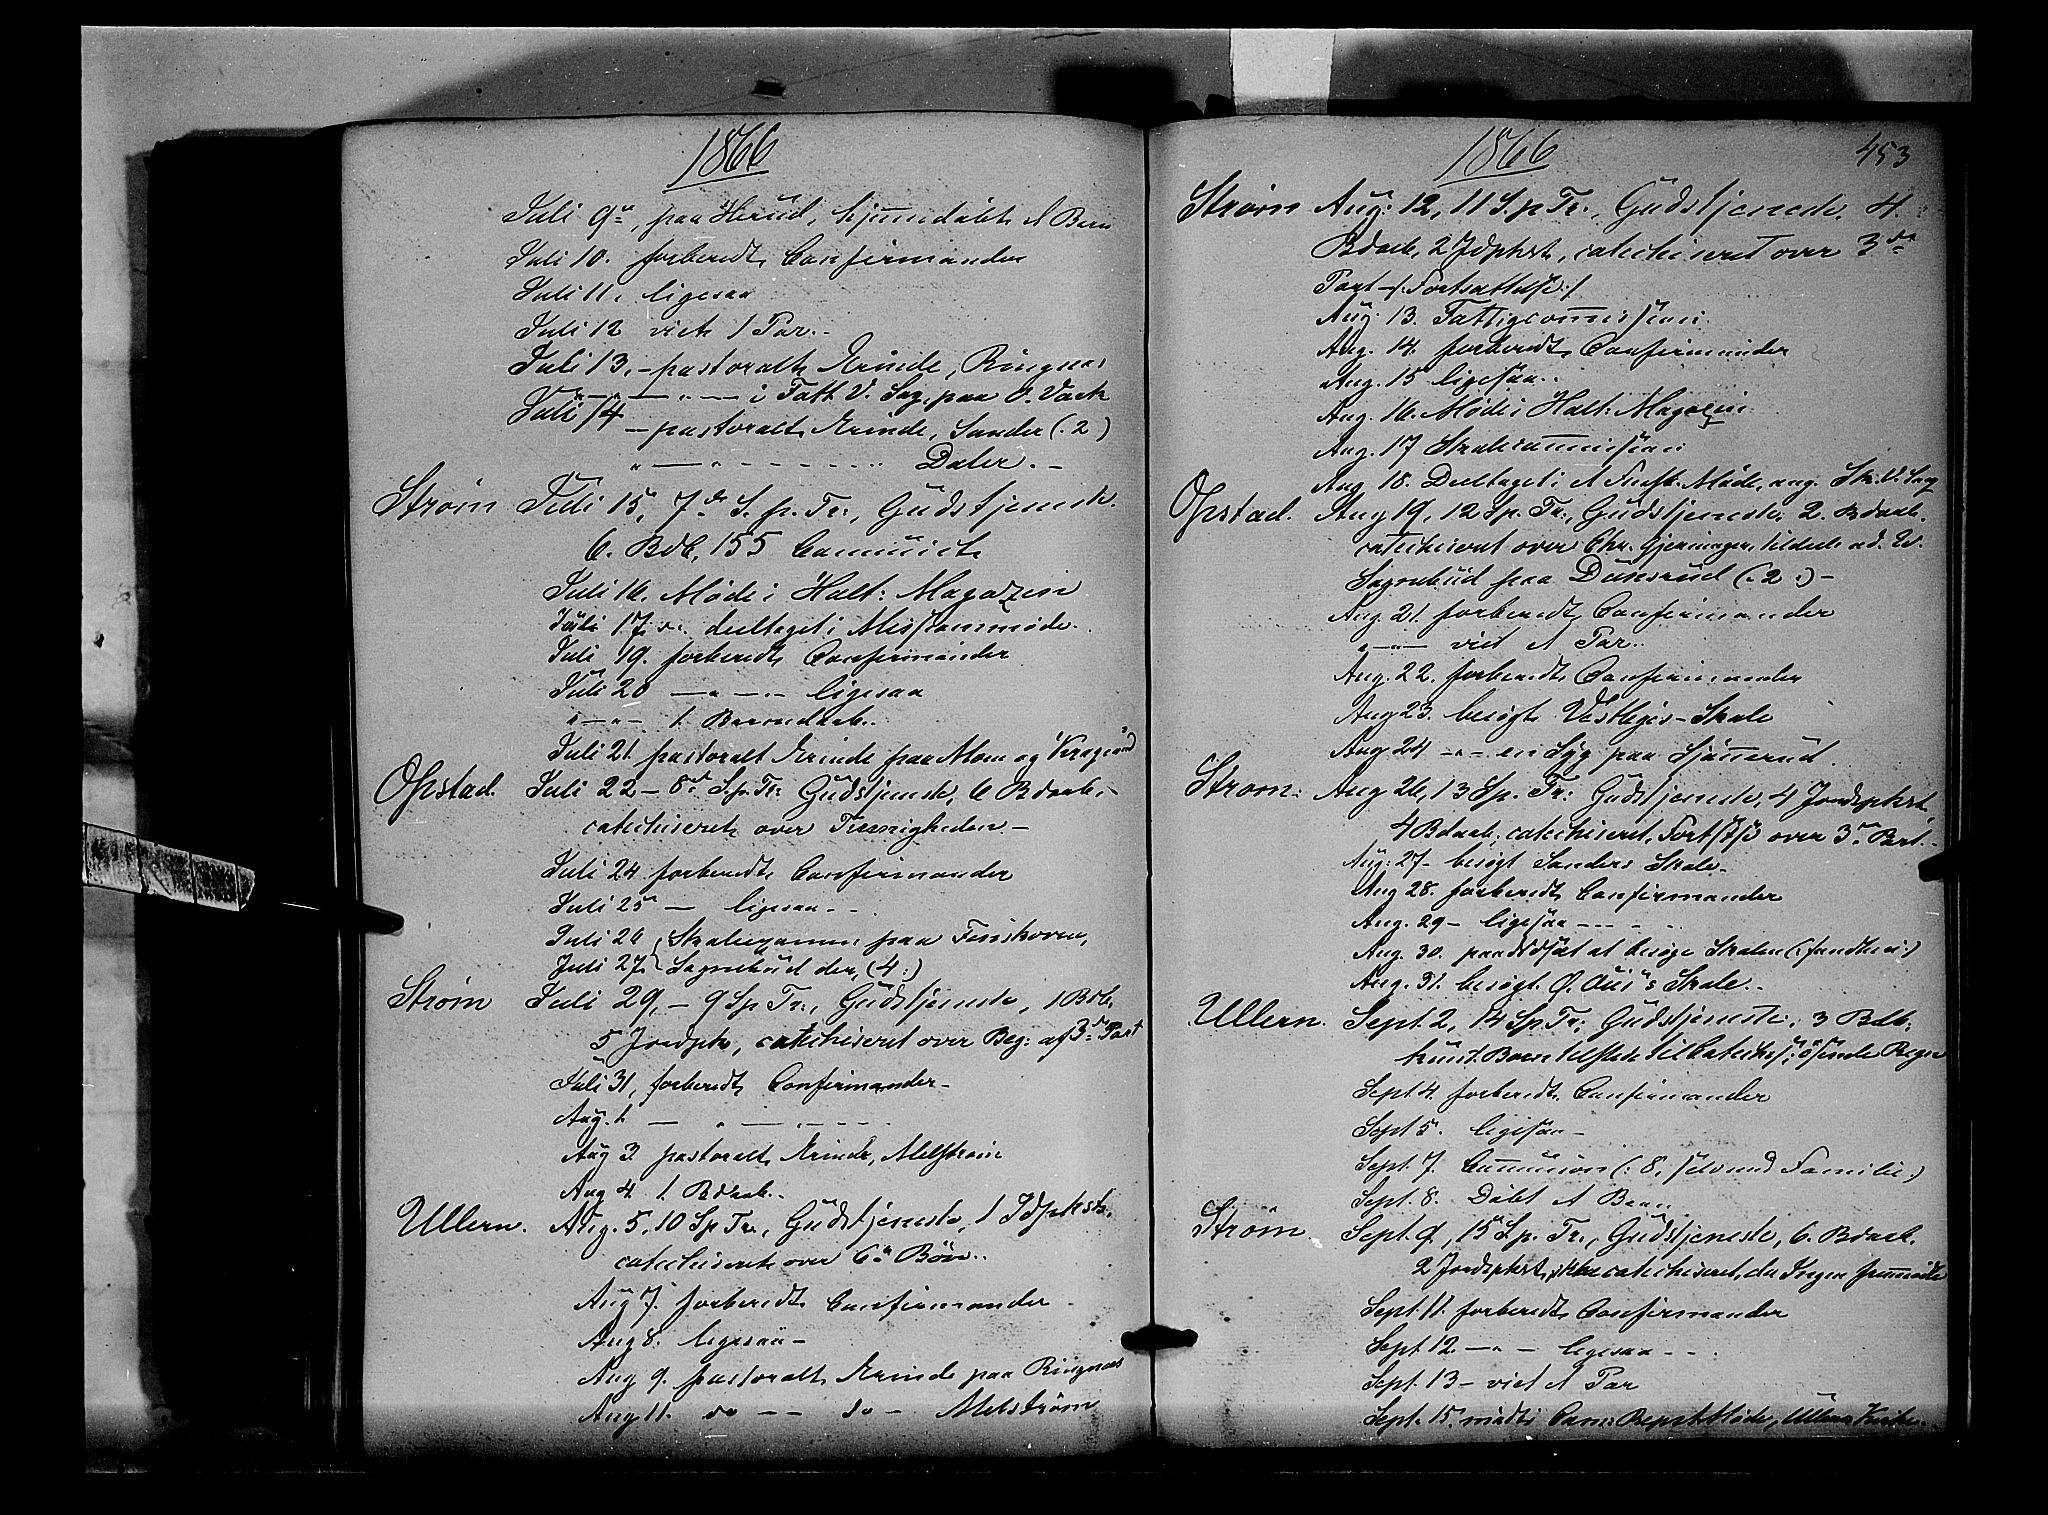 1866
Juli 9de, paa Herud, hjemmedøbt 1 Barn
Juli 10. forberedt Confirmander
Juli 11. ligesaa
Juli 12 viet 1 Par.-
Juli 13.- pastoralt Ærinde, Ringnæs
i Fatt. V. Sag. paa
Juli 14 - pastoralt Ærinde, Sander (:2)
" — " - - - - - - - Daler.-
Strøm Juli 15, 7de S. p. Tr., Gudstjeneste.
6. Bdb, 155 Communic.
Juli 16. Møde i Halt: Magazin
Juli 17. deeltaget i Missionsmøde.
Juli 19. forberedt Confirmander
Juli 20 — " — - ligesaa
" — " - 1. Barnedaab..
Juli 21. pastoralt Ærinde paa Mom og
Opstad. Juli 22 - 8de S. p. Tr: Gudstjeneste, 6 Bdaab, -
catechiseret over
Juli 24. forberedt Confirmander
Juli 25 — ligesaa - -
Juli 26 Skoleexamen paa Finskoven,
Juli 27. Sognebud der, (4:)
Strøm Juli 29, - 9 S p Tr., Gudstjeneste, 1 Bdb.
5 Jordpk, catechiseret over Beg: af 3die Part
Juli 31, forberedt Confirmander -
Aug. 1. — " - - - - -
Aug 3. pastoralt Ærinde, Melstrøm
Aug 4. 1. Bdaab.-
Ullern. Aug. 5, 10 S p Tr., Gudstjeneste, 1 Jdpkst.
catechiseret over 6te Bøn..
Aug 7. forberedt Confirmander
Aug 8. ligesaa -
Aug 9. pastoralt Ærinde paa Ringnæs
Aug 11. do — — do - Melstrøm
1866 453
Strøm Aug: 12, 11 S. p Tr., Gudstjeneste. 4.
Bdaab, 2 Jdpkst, catechiseret over 3die
Part - /: Fortsættelse :/
Aug: 13. Fattigcommission
Aug. 14. forberedt Confirmander
Aug. 15 ligesaa..
Aug. 16. Møde i Halt: Magazin
Aug. 17 Skolecommission
Aug. 18. Deeltaget i 1 Møde, ang. Sk. V. Sag
Opstad. Aug 19, 12 S p. Tr:, Gudstjeneste, 2. Bdaab.
catechiseret over Chr. Gjerninger
Sognebud paa Dunsrud (:2:) -
Aug. 21. forberedt Confirmander
" — " — viet 1 Par..
Aug. 22. forberedt Confirmander
Aug 23. besøgt - Skole
Aug 24 — " - en Syg paa
Strøm: Aug 26, 13 S p. Tr: Gudstjeneste, 4 Jordpkst,
4 Bdaab, catechiseret, over 3die Part.-
Aug: 27 - besøgt Sanders Skole.
Aug 28. forberedt Confirmander
Aug. 29 - ligesaa - - - -
Aug. 30. at besøge Skolen
Aug. 31. besøgt Ø. Skole.-
Ullern. Sept. 2, 14 S p Tr., Gudstjeneste, 3 Bdb:
Regn
Sept. 4 forberedt Confirmander
Sept 5. ligesaa -
Sept. 7. Communion (: 8, selv med Familie:)
Sept. 8. Døbt 1 Barn
Strøm. Sept. 9, 15 S. p. Tr., Gudstjeneste, 6. Bdaab.
2 Jordspkst, ikke catechiseret, da Ingen fremmødte
Sept. 11. forberedt Confirmander
Sept. 12 — " — ligesaa - - -
Sept. 13 - viet 1 Par
Sept. 15. Møde, Ullern Kirke